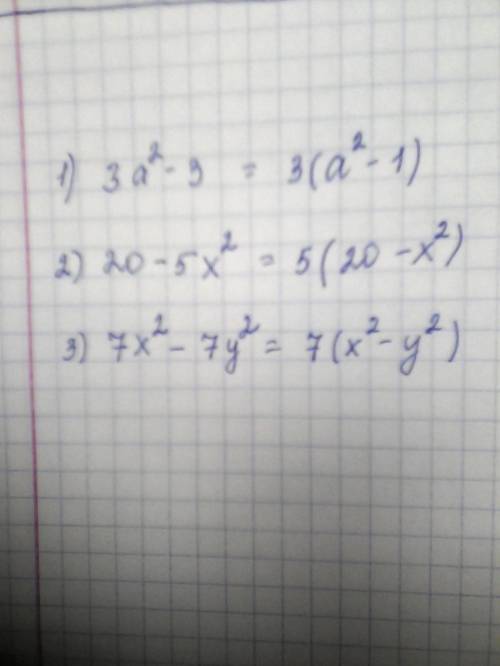 1) 3a² - 3 = 3(a² - 1)
2) 20 - 5x² = 5(20 - x²)
3) 7x² - 7y² = 7(x² - y²)